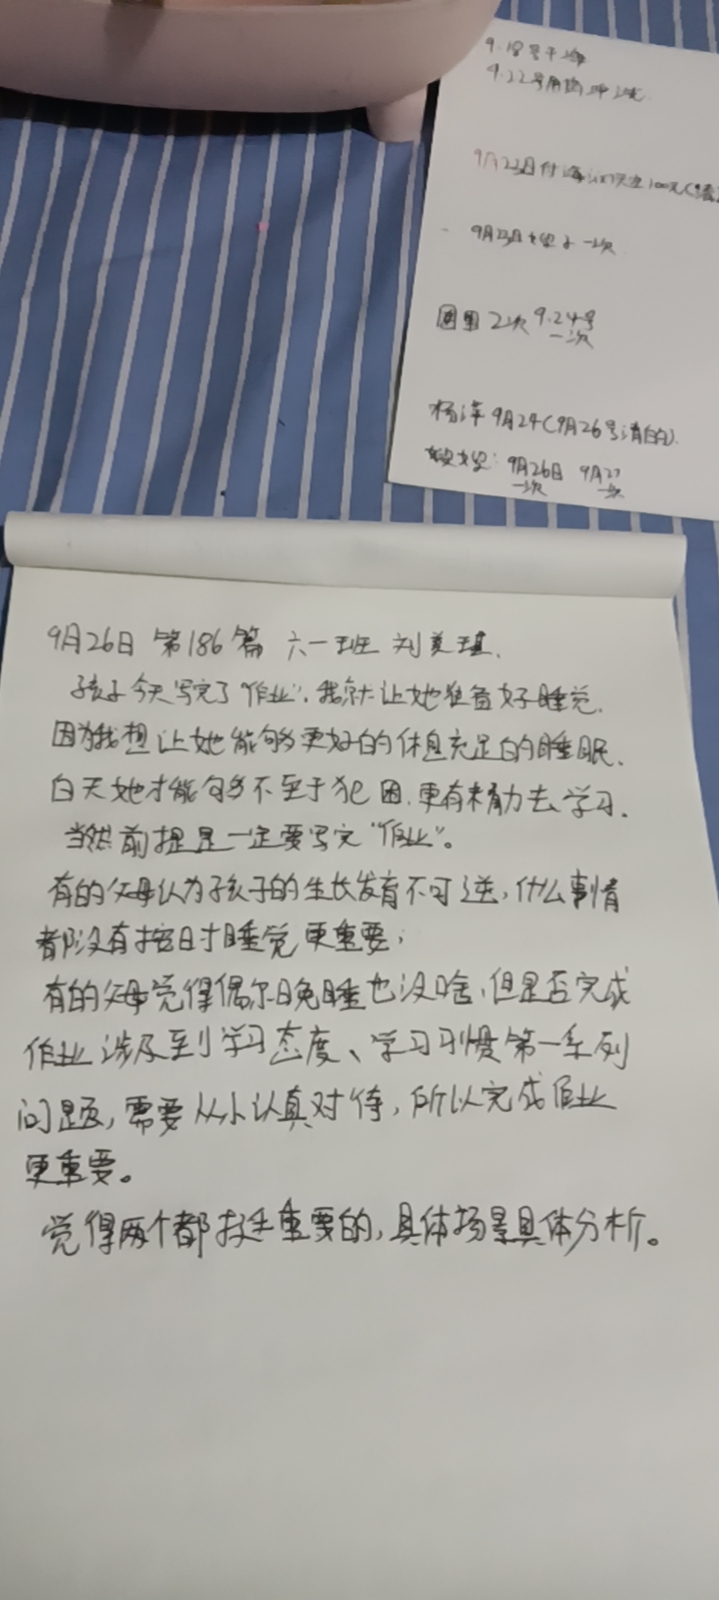 9.18号
9.22号
9月23日付 100元
9月23日 一次
团圆 2次 9.24号
一次
杨洋 9月24(9月26号清的).
9月26日 9月27
一次 一次
9月26日 第186篇 六一班 刘美琪.
孩子今天写完了"作业",我就让她准备好睡觉.
因为我想让她能够更好的休息充足的睡眠.
白天她才能够不至于犯困.更有精力去学习.
当然前提是一定要写完"作业"。
有的父母认为孩子的生长发育不可逆,什么事情
都没有按时睡觉更重要;
有的父母觉得偶尔晚睡也没啥,但是否完成
作业涉及到学习态度、学习习惯第一系列
问题,需要从小认真对待,所以完成作业
更重要。
觉得两个都挺重要的,具体场景具体分析。